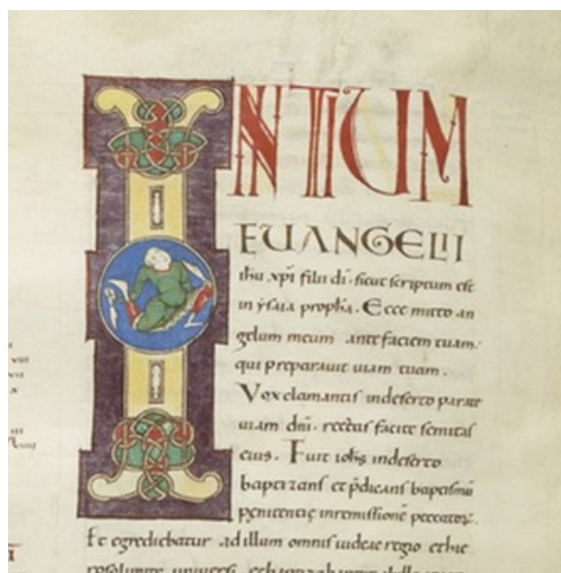 INITIUM
EUANGELII
ihu xpi filii di. sicut scriptum est
in ysaia propha. Ecce mitto an
gelum meum ante faciem tuam.
qui preparavit uiam tuam.
Vox clamantis indeserto parate
uiam dni. rectas facite semitas
eius. Fuit iohs indeserto
baptizans et pdicans baptismu
penitentie inremissione peccator.
Et egrediebatur ad illum omnis iudeae regio ethie
rosolimite uniuersi